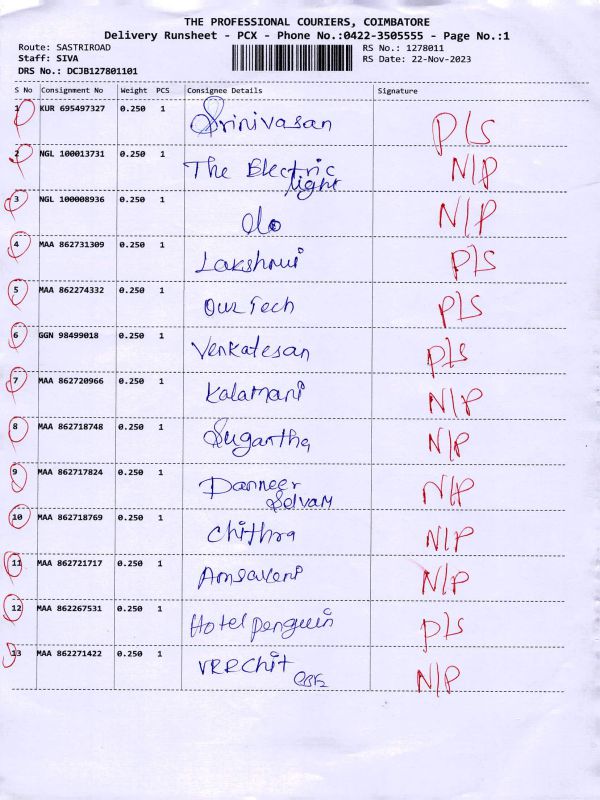 THE PROFESSIONAL COURIERS, COIMBATORE
Delivery Runsheet - PCX - Phone No.:0422-3505555 - Page No.:1
Route: SASTRIROAD RS No.: 1278011
Staff: SIVA RS Date: 22-Nov-2023
DRS No.: DCJB127801101
S No Consignment No Weight PCS Consignee Details Signature
1 KUR 695497327 0.250 1 Srinivasan P/S
2 NGL 100013731 0.250 1 The Electric N/P
light
3 NGL 100008936 0.250 1 do N/P
4 MAA 862731309 0.250 1 Lakshmi P/S
5 MAA 862274332 0.250 1 Our Tech P/S
6 GGN 98499018 0.250 1 Venkatesan P/S
7 MAA 862720966 0.250 1 Kalamani N/P
8 MAA 862718748 0.250 1 Sugantha N/P
9 MAA 862717824 0.250 1 Panneer N/P
Selvam
10 MAA 862718769 0.250 1 Chithra N/P
11 MAA 862721717 0.250 1 Amsaveni N/P
12 MAA 862267531 0.250 1 Hotel penguin P/S
13 MAA 862271422 0.250 1 Chit N/P